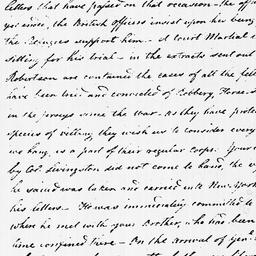 letters that have passed on that occasion – the offi
yet since, the British officers insist upon his being
the Refugees support him – A Court Martial is
sitting for his trial – in the extracts sent out
Robertson are contained the cases of all the fell
have been tried and convicted of Robbery, Horse-s
in the Jerseys since the war – As they have prote
species of villainy they wish us to consider every
we hang, is a part of their regular Corps. Your
by Col. Livingston did not come to hand, the v
he sailed in was taken and carried into New York
his letters – He was immediately committed to
when he met with your Brother, who had been
time confined there – On the arrival of Gen.